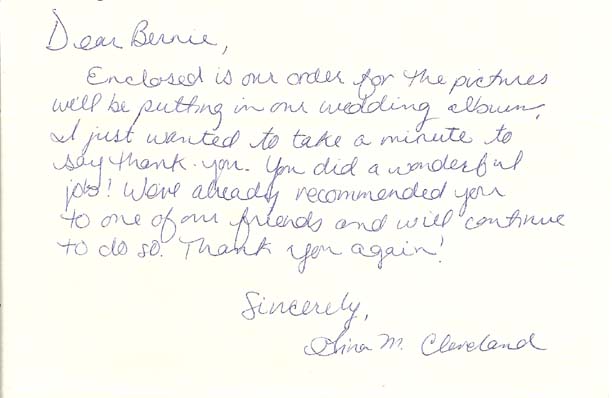 Dear Bernie,
Enclosed is our order for the pictures
we'll be putting in our wedding album.
I just wanted to take a minute to
say thank you. You did a wonderful
job! We've already recommended you
to one of our friends and will continue
to do so. Thank you again!
Sincerely,
M. Cleveland